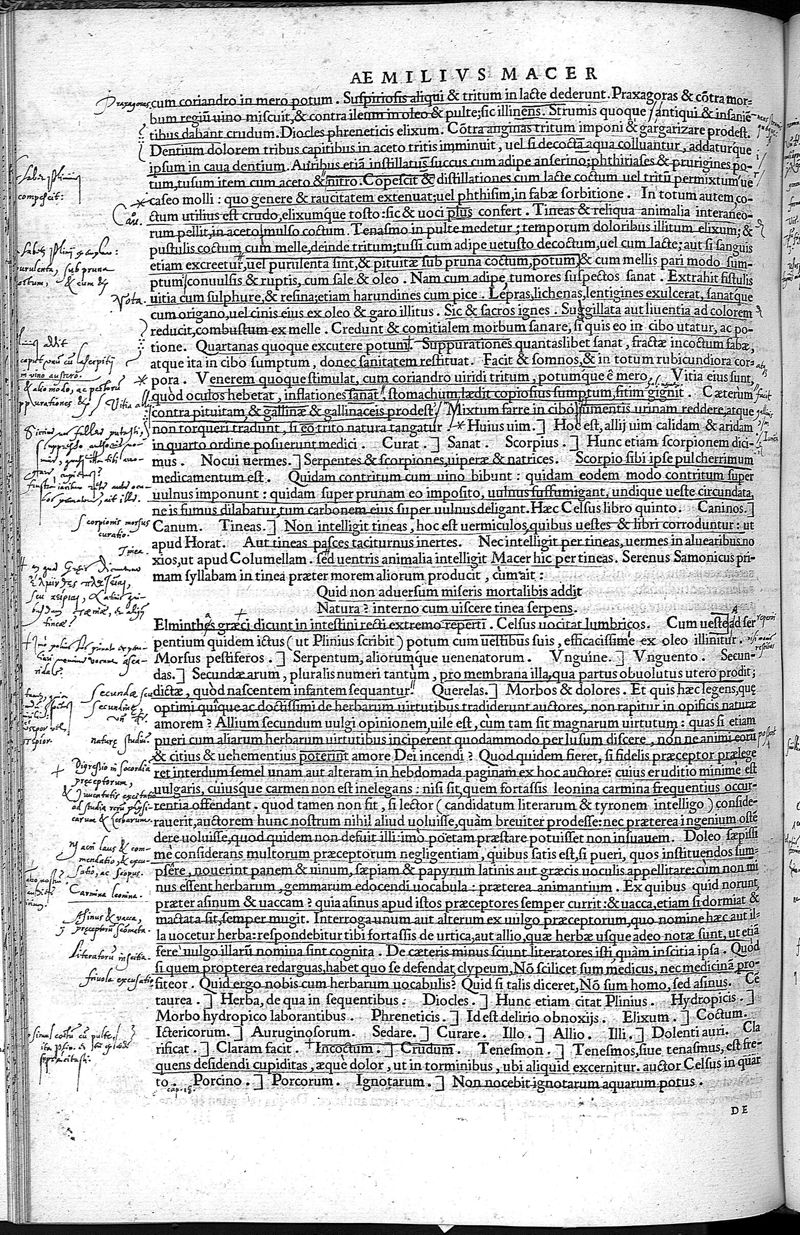 AEMILIVS MACER
cum coriandro in mero potum. Suspiriosis aliqui & tritum in lacte dederunt. Praxagoras & cōtra mor-
bum regiū uino miscuit, & contra ileum in oleo & pulte; sic illinens. Strumis quoque antiqui & insaniē
tibus dabant crudum. Diocles phreneticis elixum. Cōtra anginas tritum imponi & gargarizare prodest.
Dentium dolorem tribus capitibus in aceto tritis imminuit, uel si decocta aqua colluantur, addaturque
ipsum in caua dentium. Auribus etiā instillatus succus cum adipe anserino; phthiriases & prurigines po-
tum, tusum item cum aceto & nitro. Copescit & distillationes cum lacte coctum uel tritū permixtum ue
caseo molli: quo genere & raucitatem extenuat; uel phthisim, in fabæ sorbitione. In totum autem co-
ctum utilius est crudo, elixumque tosto: sic & uoci plus confert. Tineas & reliqua animalia interaneo-
rum pellit, in aceto mulso coctum. Tenasmo in pulte medetur; temporum doloribus illitum elixum; &
pustulis coctum cum melle, deinde tritum; tussi cum adipe uetusto decoctum, uel cum lacte; aut si sanguis
etiam excreetur, uel purulenta sint, & pituitæ sub pruna coctum, potum & cum mellis pari modo sum-
ptum conuulsis & ruptis, cum sale & oleo. Nam cum adipe tumores suspectos sanat. Extrahit fistulis
Nota. uitia cum sulphure, & resina; etiam harundines cum pice. Lepras, lichenas, lentigines exulcerat, sanatque
cum origano, uel cinis eius ex oleo & garo illitus. Sic & sacros ignes. Suggillata aut liuentia ad colorem
reducit, combustum ex melle. Credunt & comitialem morbum sanare, si quis eo in cibo utatur, ac po-
tione. Quartanas quoque excutere potum. Suppurationes quantaslibet sanat, fractæ incoctum fabæ,
atque ita in cibo sumptum, donec sanitatem restituat. Facit & somnos, & in totum rubicundiora cor-
pora. Venerem quoque stimulat, cum coriandro uiridi tritum, potumque ē mero. Vitia eius sunt,
quòd oculos hebetat, inflationes sanat, stomachum lædit copiosius sumptum, sitim gignit. Cæterum
contra pituitam, & gallinæ & gallinaceis prodest. Mixtum farre in cibo, iumentis urinam reddere, atque
non torqueri tradunt, si eo trito natura tangatur. Huius uim.] Hoc est, allij uim calidam & aridam
in quarto ordine posuerunt medici. Curat.] Sanat. Scorpius.] Hunc etiam scorpionem dici-
mus. Nocui uermes.] Serpentes & scorpiones, uiperæ & natrices. Scorpio sibi ipse pulcherrimum
medicamentum est. Quidam contritum cum uino bibunt: quidam eodem modo contritum super
uulnus imponunt: quidam super prunam eo imposito, uulnus suffumigant, undique ueste circundata,
ne is fumus dilabatur, tum carbonem eius super uulnus deligant. Hæc Celsus libro quinto. Caninos.]
Canum. Tineas.] Non intelligit tineas, hoc est uermiculos, quibus uestes & libri corroduntur: ut
apud Horat. Aut tineas pasces taciturnus inertes. Nec intelligit per tineas, uermes in aluearibus no
xios, ut apud Columellam. sed uentris animalia intelligit Macer hic per tineas. Serenus Samonicus pri-
mam syllabam in tinea præter morem aliorum producit, cùm ait:
Quid non aduersum miseris mortalibus addit
Natura? interno cum uiscere tinea serpens.
Elminthes græci dicunt in intestini recti extremo reperti. Celsus uocitat lumbricos. Cum ueste ad ser
pentium quidem ictus (ut Plinius scribit) potum cum uestibus suis, efficacissime ex oleo illinitur.
Morsus pestiferos.] Serpentum, aliorumque uenenatorum. Vnguine.] Vnguento. Secun-
das.] Secundæ arum, pluralis numeri tantum, pro membrana illa, qua partus obuolutus utero prodit;
dictæ, quòd nascentem infantem sequantur. Querelas.] Morbos & dolores. Et quis hæc legens, quæ
optimi quique ac doctissimi de herbarum uirtutibus tradiderunt auctores, non rapitur in opificis naturæ
amorem? Allium secundum uulgi opinionem, uile est, cùm tam sit magnarum uirtutum: quas si etiam
pueri cum aliarum herbarum uirtutibus inciperent quodammodo per lusum discere, non ne animi eorū
& citius & uehementius poterint amore Dei incendi? Quod quidem fieret, si fidelis præceptor prælege
ret interdum semel unam aut alteram in hebdomada paginam ex hoc auctore: cuius eruditio minimè est
uulgaris, cuiusque carmen non est inelegans: nisi sit, quem fortassis leonina carmina frequentius occur-
rentia offendant. quod tamen non fit, si lector (candidatum literarum & tyronem intelligo) conside-
rauerit, auctorem hunc nostrum nihil aliud uoluisse, quàm breuiter prodesse: nec præterea ingenium oste
dere uoluisse, quod quidem non defuit illi: imò poëtam præstare potuisset non insuauem. Doleo sæpissi
mè considerans multorum præceptorum negligentiam, quibus satis est, si pueri, quos instituendos sum-
psêre, nouerint panem & uinum, sæpiam & papyrum latinis aut græcis uoculis appellitare: cum non mi
nus essent herbarum, gemmarum edocendi uocabula: præterea animantium. Ex quibus quid norunt,
præter asinum & uaccam? quia asinus apud istos præceptores semper currit: & uacca, etiam si dormiat &
mactata sit, semper mugit. Interroga unum aut alterum ex uulgo præceptorum, quo nomine hæc aut il-
la uocetur herba: respondebitur tibi fortassis de urtica, aut allio, quæ herbæ usque adeo notæ sunt, ut etiā
ferè uulgo illarū nomina sint cognita. De cæteris minus sciunt literatores isti quàm inscitia ipsa. Quòd
si quem propterea redarguas, habet quo se defendat clypeum, Nō scilicet sum medicus, nec medicinā pro-
fiteor. Quid ergo nobis cum herbarum uocabulis? Quid si talis diceret, Nō sum homo, sed asinus. Cē
taurea.] Herba, de qua in sequentibus. Diocles.] Hunc etiam citat Plinius. Hydropicis.]
Morbo hydropico laborantibus. Phreneticis.] Id est delirio obnoxijs. Elixum.] Coctum.
Ictericorum.] Auruginosorum. Sedare.] Curare. Illo.] Allio. Illi.] Dolenti auri. Cla
rificat.] Claram facit. Incoctum.] Crudum. Tenesmon.] Tenesmos, siue tenasmus, est fre-
quens desidendi cupiditas, æquè dolor, ut in torminibus, ubi aliquid excernitur. auctor Celsus in quar
to. cap. 18. Porcino.] Porcorum. Ignotarum.] Non nocebit ignotarum aquarum potus.
DE
Praxagoras
Scorpionis morsus
curatio.
Tinea.
naturæ studium.
Digressio in socordia
præceptorum,
Carmina leonina.
Asinus & vacca,
Literatorū inscitia.
friuola excusatio